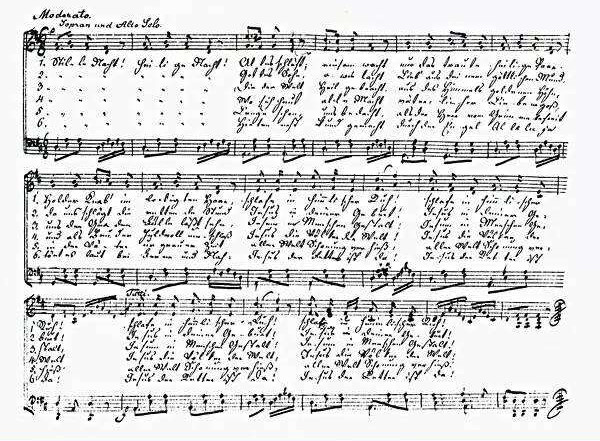 Moderato.
Sopran und Alto Solo.
1. Stille Nacht! heilige Nacht! Alles schläft; einsam wacht nur das traute heilige Paar.
2. " " " " Gottes Sohn! o wie lacht Lieb aus deinem göttlichen Mund,
3. " " " " Die der Welt Heil gebracht, aus des Himmels goldenen Höhn,
4. " " " " Wo sich heut alle Macht väterlicher Liebe ergoß,
5. " " " " Lange schon uns bedacht, als der Herr vom Grimme befreit
6. " " " " Hirten erst kund gemacht durch der Engel Alleluja
1. Holder Knab' im lockigten Haar, schlafe in himmlischer Ruh! schlafe in himmlischer
2. da uns schlägt die rettende Stund Jesus in deiner Geburt! Jesus in deiner Ge:
3. uns der Gnaden Fülle läßt sehn Jesum in Menschengestalt! Jesum in Menschen Ge:
4. und als Bruder huldvoll umschloß Jesus die Völker der Welt! Jesus die Völker
5. in der Väter urgrauer Zeit aller Welt Schonung verhieß! aller Welt Schonung ver:
6. tönt es laut bei Ferne und Nah: Jesus der Retter ist da! Jesus der Retter ist
Tutti.
1. Ruh! schlafe in himmlischer Ruh! schlafe in himmlischer Ruh!
2. burt! Jesus in deiner Geburt! Jesus in deiner Geburt!
3. stalt! Jesum in Menschengestalt! Jesum in Menschengestalt!
4. Welt Jesus die Völker der Welt! Jesus die Völker der Welt!
5. hieß! aller Welt Schonung verhieß! aller Welt Schonung verhieß!
6. da! Jesus der Retter ist da! Jesus der Retter ist da!